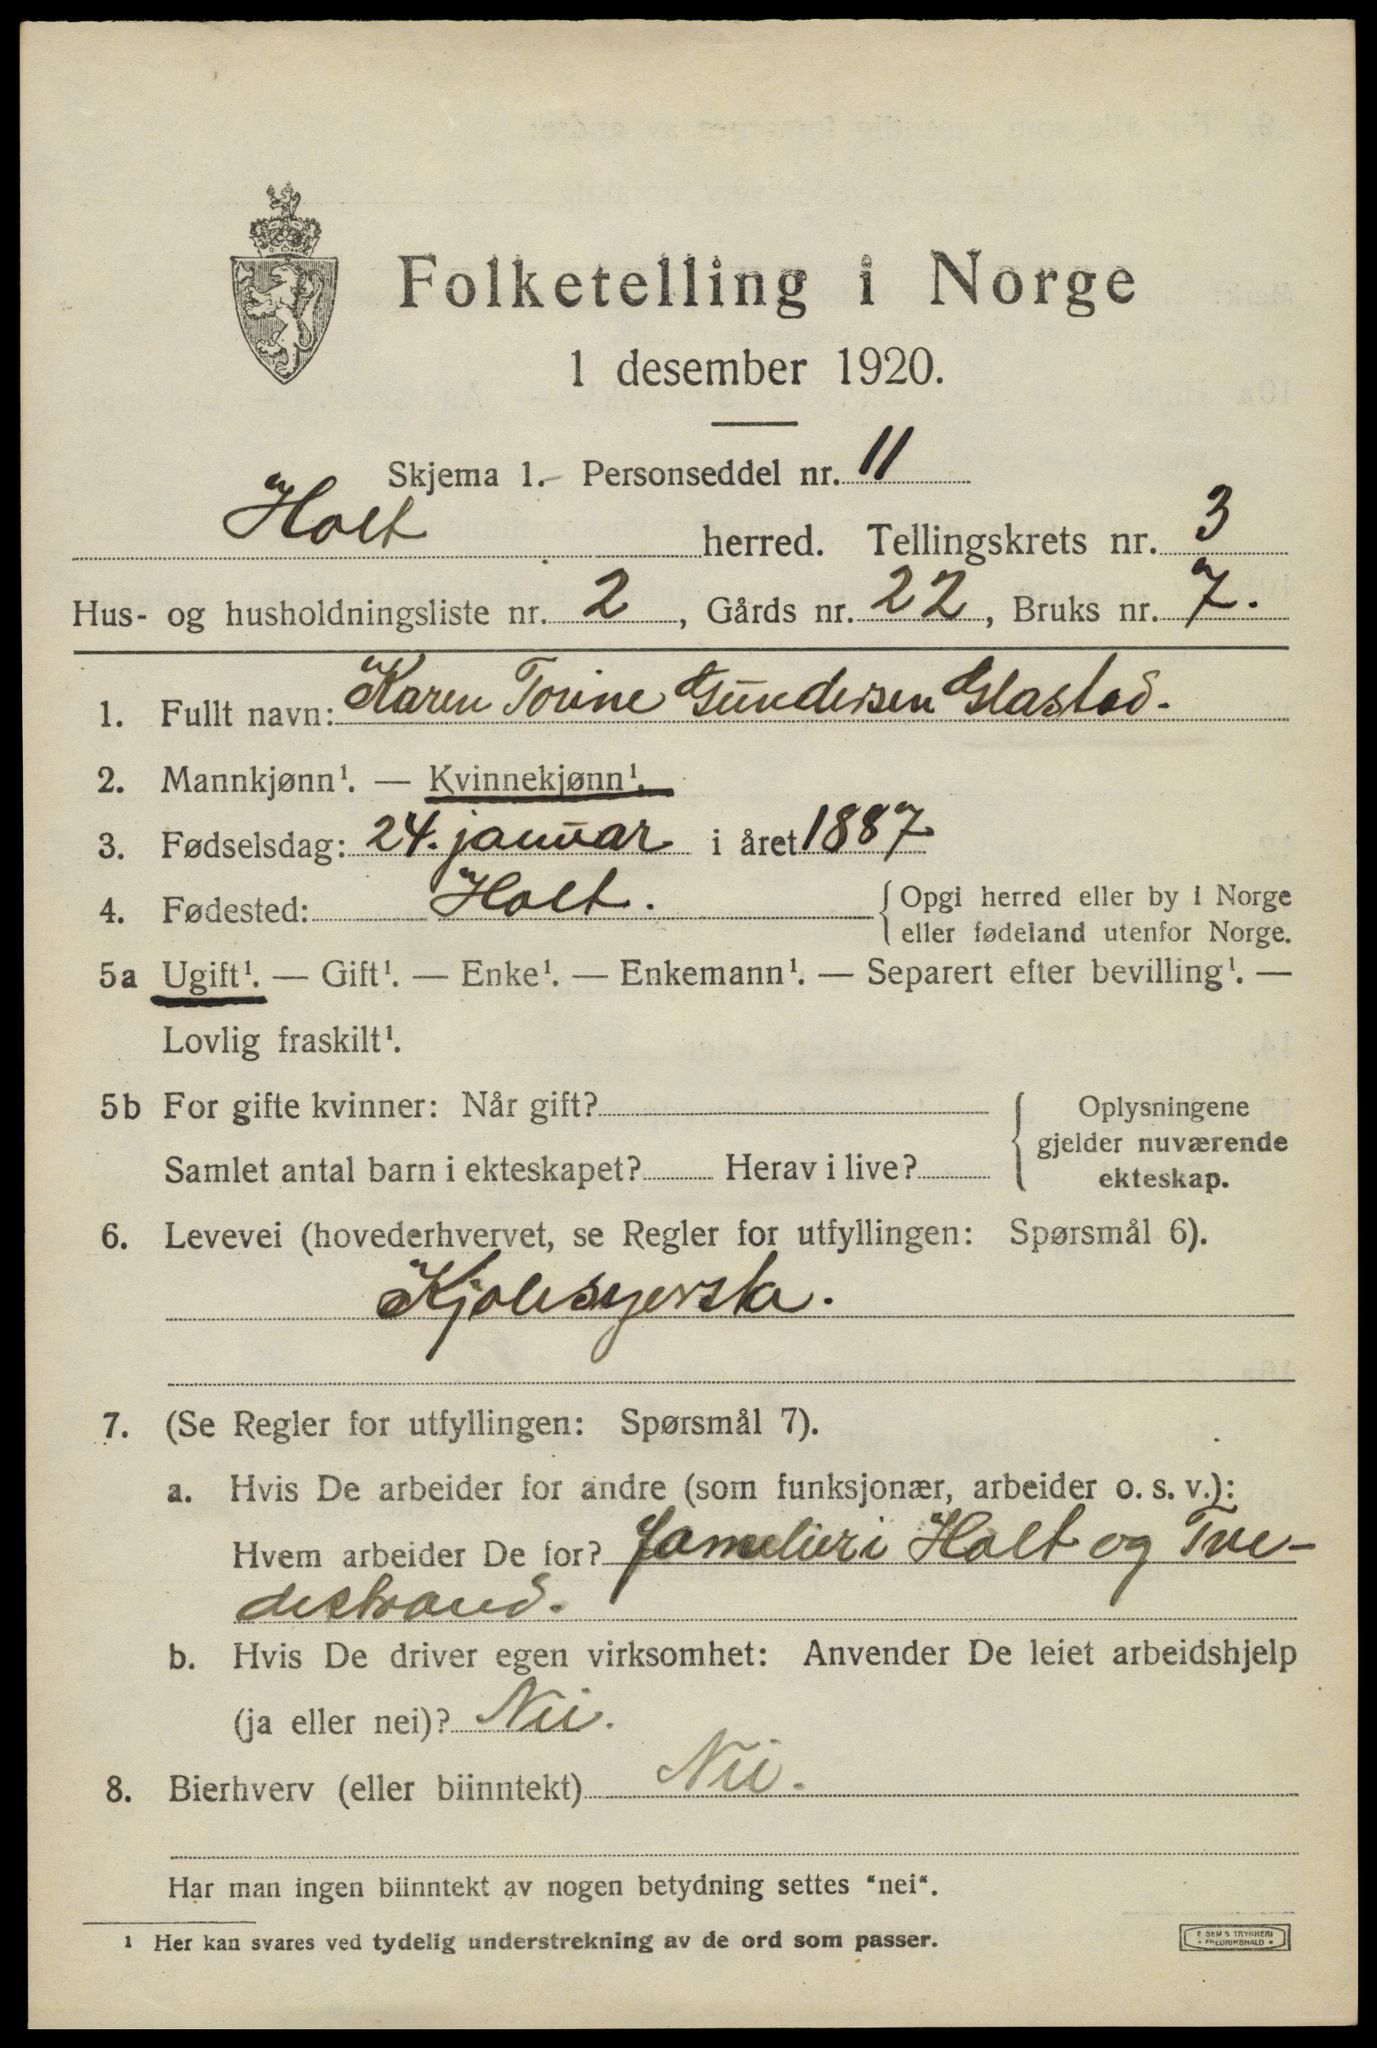 Folketelling i Norge
1 desember 1920.
Skjema 1. Personseddel nr. 11
Holt herred. Tellingskrets nr. 3
Hus- og husholdningsliste nr. 2, Gårds nr. 22, Bruks nr. 7.
1. Fullt navn: Karen Torine Gundersen Glastad.
2. Mannkjønn¹. — Kvinnekjønn¹.
3. Fødselsdag: 24. januar i året 1887
4. Fødested: Holt. { Opgi herred eller by i Norge
eller fødeland utenfor Norge.
5a Ugift¹. — Gift¹. — Enke¹. — Enkemann¹. — Separert efter bevilling¹. —
Lovlig fraskilt¹.
5b For gifte kvinner: Når gift? { Oplysningene
gjelder nuværende
Samlet antal barn i ekteskapet? Herav i live? ekteskap.
6. Levevei (hovederhvervet, se Regler for utfyllingen: Spørsmål 6).
Kjolesyerska.
7. (Se Regler for utfyllingen: Spørsmål 7).
a. Hvis De arbeider for andre (som funksjonær, arbeider o. s. v.):
Hvem arbeider De for? familier i Holt og Tve-
destrand.
b. Hvis De driver egen virksomhet: Anvender De leiet arbeidshjelp
(ja eller nei)? Nei.
8. Bierhverv (eller biinntekt) Nei.
Har man ingen biinntekt av nogen betydning settes "nei".
¹ Her kan svares ved tydelig understrekning av de ord som passer.
SEN'S TRYKKERI
FREDRIKSHALD